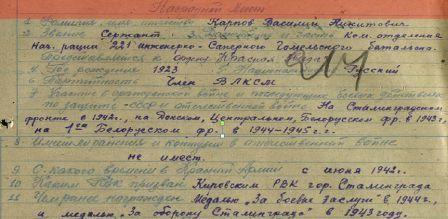 Наградной Лист
1. Фамилия имя отчество Карпов Василий Никитович
2. Звание Сержант 3. Должность и часть Ком. отделения
нач. рации 221 инженерно-Саперного Гомельского батальона.
Представляется к Ордену Красная Звезда
4. Год рождения 1923 Русский
6. Партийность Член ВЛКСМ
7. Участие в гражданской войне и последующих боевых действиях
по защите СССР и отечественной войне На Сталинградском
фронте с 1942г., на Донском, Центральном, Белорусском фр. в 1943г.
на 1ом Белорусском фр. в 1944-1945 г.г.
8. Имеет ли ранения и контузии в отечественной войне
не имеет.
9. С какого времени в Красной Армии с июня 1942г.
10. Каким РВК призван Кировским РВК гор. Сталинграда
11. Чем ранее награжден Медалью "За боевые заслуги" в 1944г.
и медалью "За оборону Сталинграда" в 1943 году.